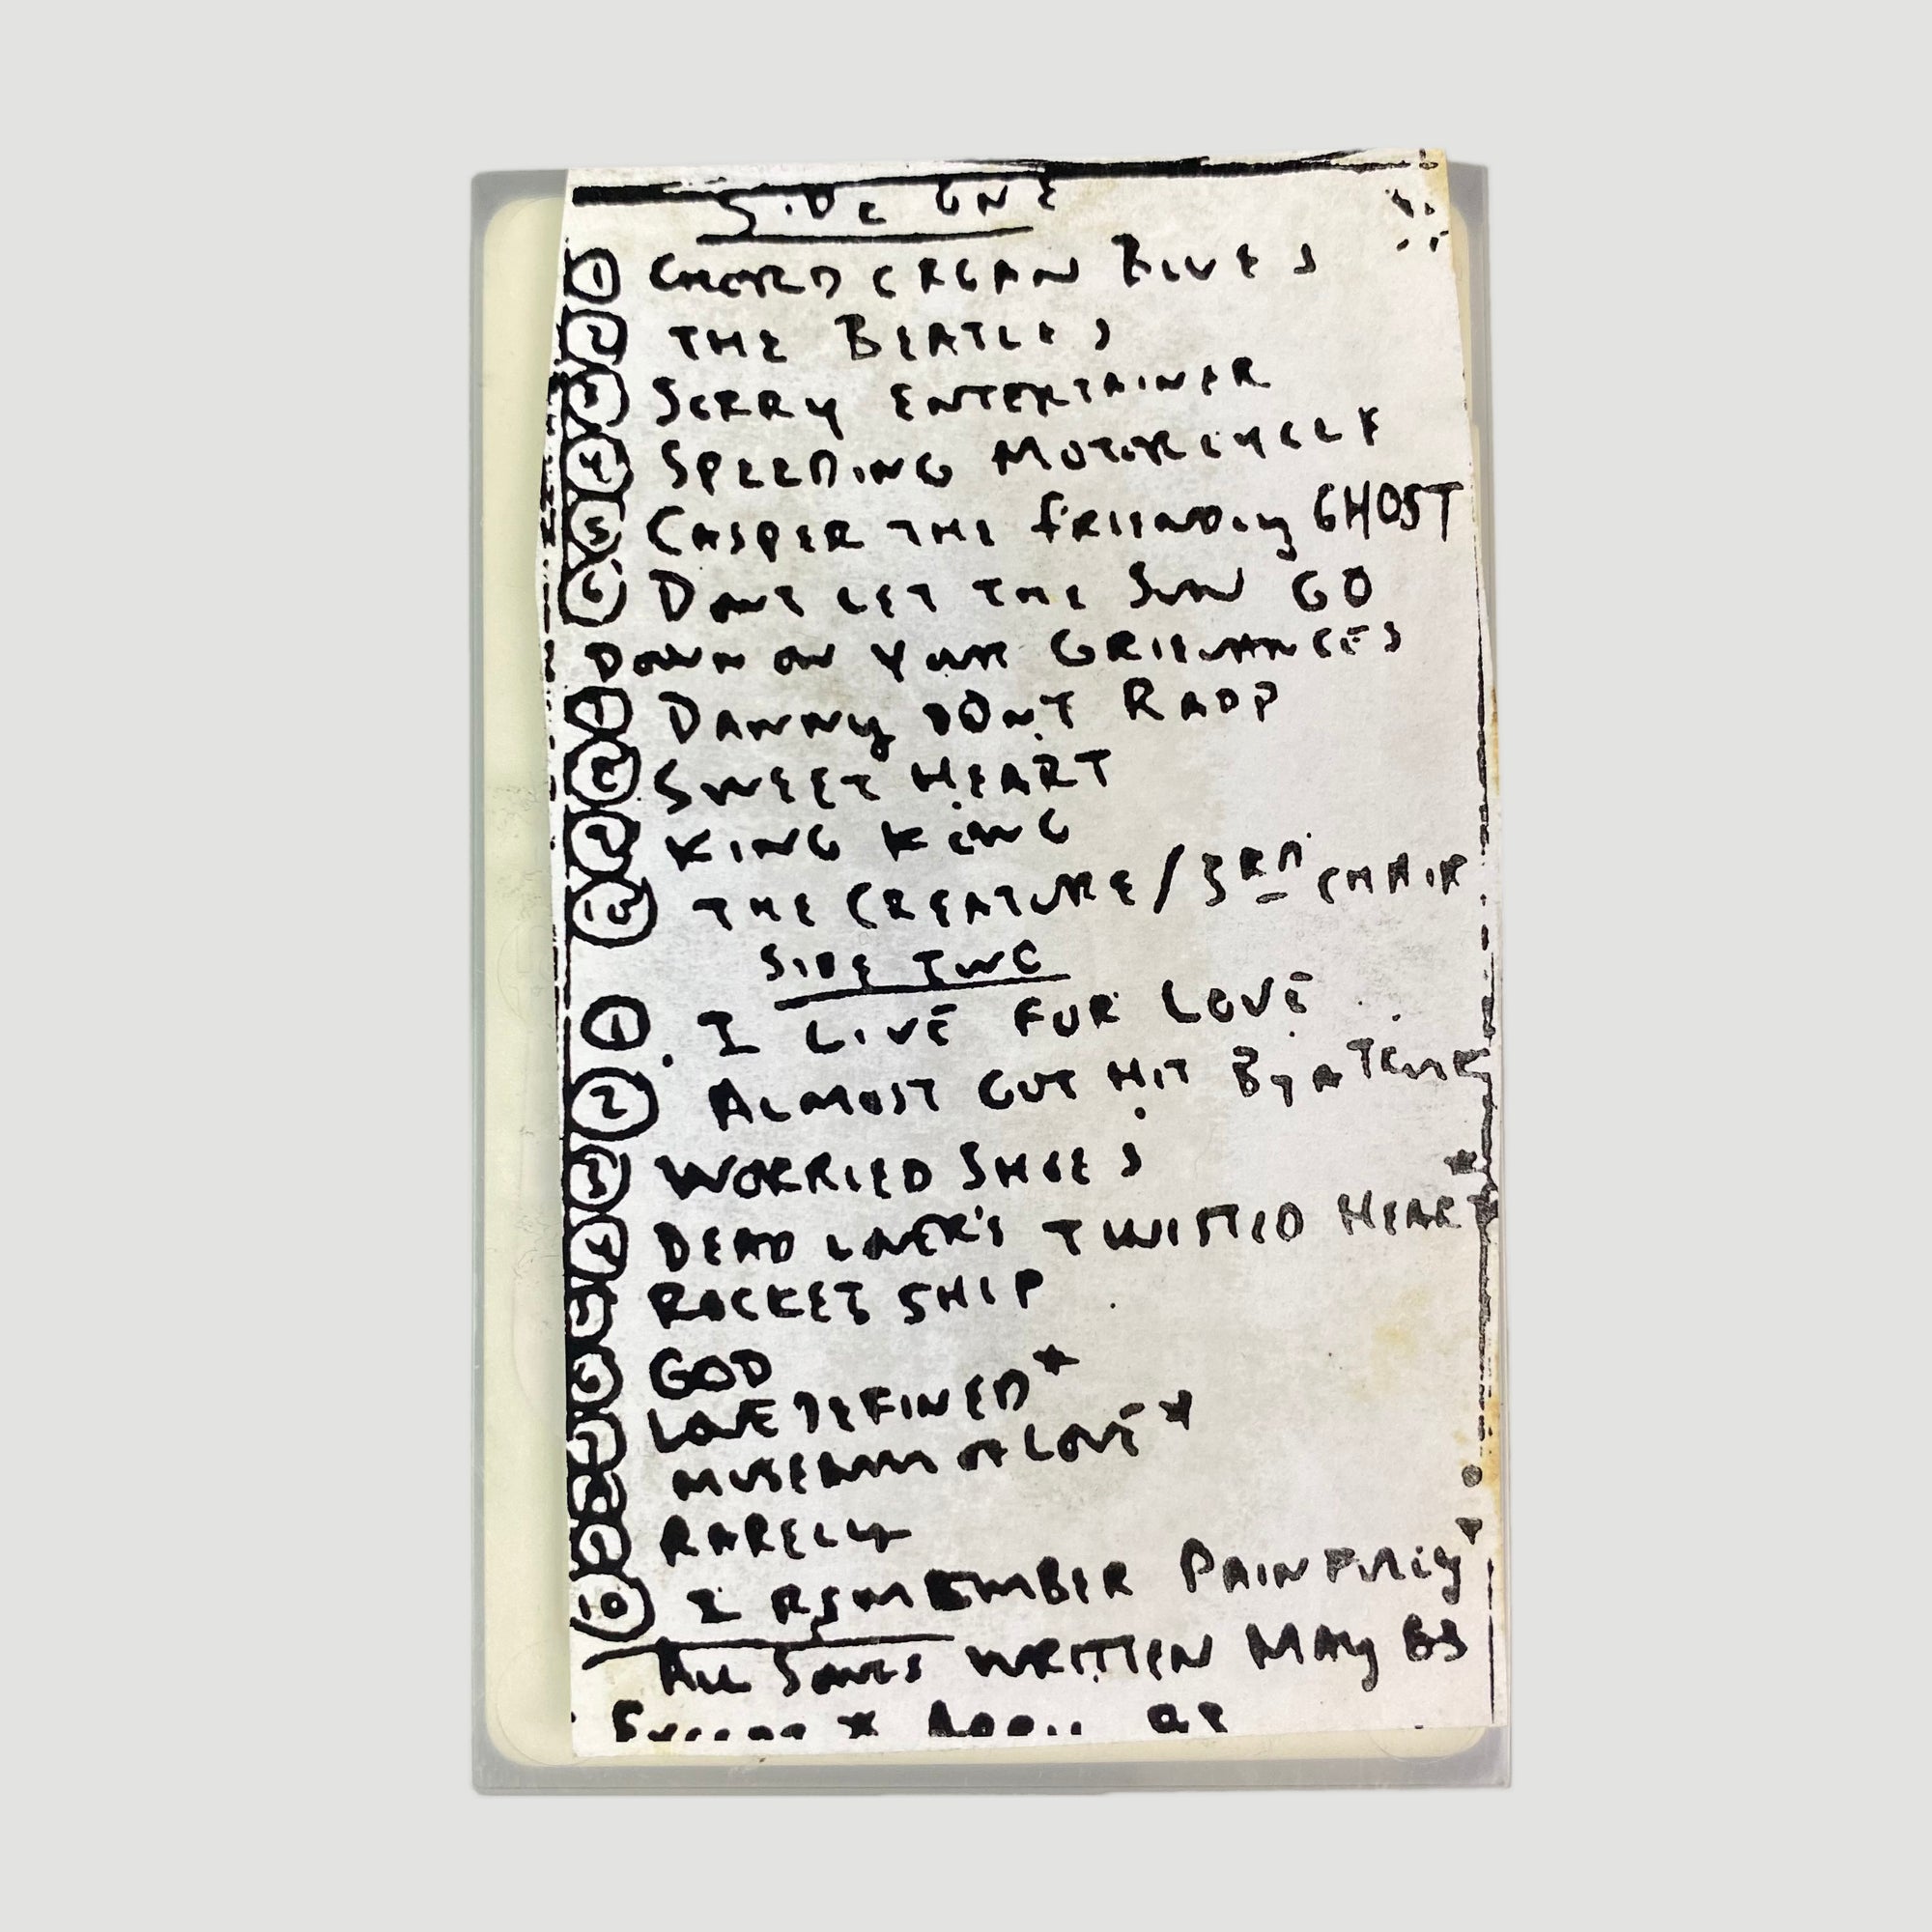 SIDE ONE
1 CHORD ORGAN BLUES
2 THE BEATLES
3 SORRY ENTERTAINER
4 SPEEDING MOTORCYCLE
5 CASPER THE FRIENDLY GHOST
6 DONT LET THE SUN GO
DOWN ON YOUR GRIEVANCES
7 DANNY DONT RAPP
8 SWEET HEART
9 KING KONG
10 THE CREATURE/3RD CHAIR
SIDE TWO
1 I LIVE FOR LOVE
2 ALMOST GOT HIT BY A TRUCK
3 WORRIED SHOES
4 DEAD LOVER'S TWISTED HEART
5 ROCKET SHIP
6 GOD
7 LOVE DEFINED*
8 MUSEUM OF LOVE*
9 RARELY
10 I REMEMBER PAINFULLY
ALL SONGS WRITTEN MAY 83